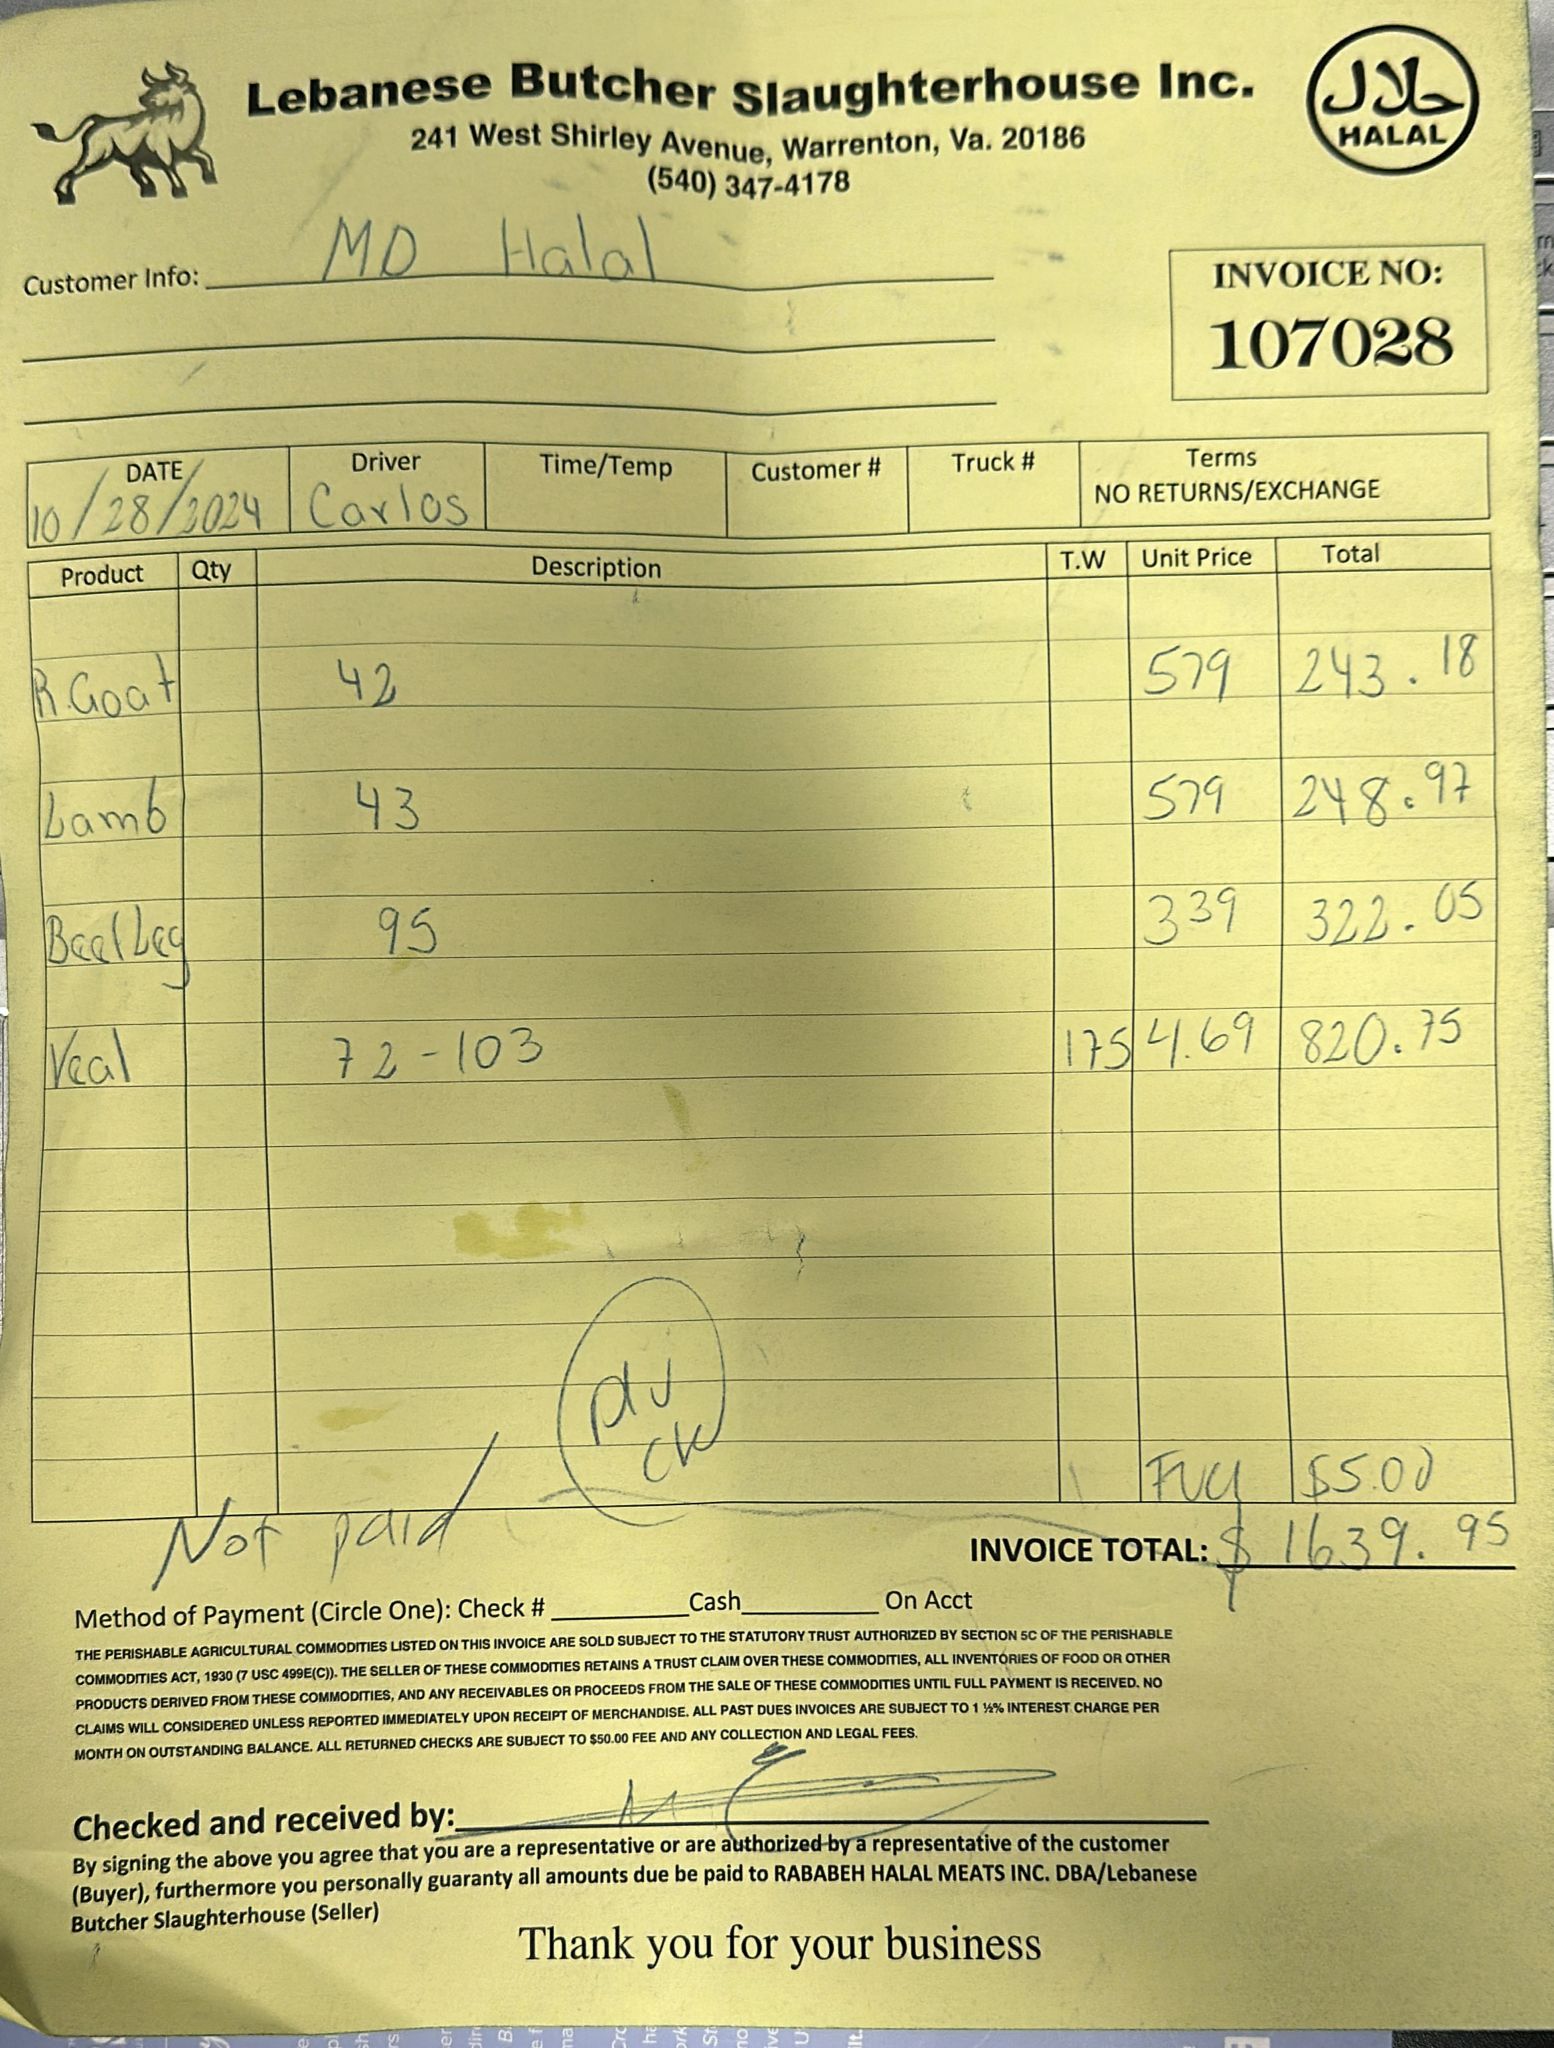 Lebanese Butcher Slaughterhouse Inc.
241 West Shirley Avenue, Warrenton, Va. 20186
(540) 347-4178
حلال
HALAL
Customer Info: MD Halal
INVOICE NO:
107028
DATE Driver Time/Temp Customer # Truck # Terms
10/28/2024 Carlos NO RETURNS/EXCHANGE
Product Qty Description T.W Unit Price Total
R.Goat 42 579 243.18
Lamb 43 579 248.97
Beef Leg 95 339 322.05
Veal 72-103 175 4.69 820.75
CK
$5.00
Not paid
INVOICE TOTAL: $ 1639.95
Method of Payment (Circle One): Check # Cash On Acct
THE PERISHABLE AGRICULTURAL COMMODITIES LISTED ON THIS INVOICE ARE SOLD SUBJECT TO THE STATUTORY TRUST AUTHORIZED BY SECTION 5C OF THE PERISHABLE
COMMODITIES ACT, 1930 (7 USC 499E(C)). THE SELLER OF THESE COMMODITIES RETAINS A TRUST CLAIM OVER THESE COMMODITIES, ALL INVENTORIES OF FOOD OR OTHER
PRODUCTS DERIVED FROM THESE COMMODITIES, AND ANY RECEIVABLES OR PROCEEDS FROM THE SALE OF THESE COMMODITIES UNTIL FULL PAYMENT IS RECEIVED. NO
CLAIMS WILL CONSIDERED UNLESS REPORTED IMMEDIATELY UPON RECEIPT OF MERCHANDISE. ALL PAST DUES INVOICES ARE SUBJECT TO 1 ½% INTEREST CHARGE PER
MONTH ON OUTSTANDING BALANCE. ALL RETURNED CHECKS ARE SUBJECT TO $50.00 FEE AND ANY COLLECTION AND LEGAL FEES.
Checked and received by:
By signing the above you agree that you are a representative or are authorized by a representative of the customer
(Buyer), furthermore you personally guaranty all amounts due be paid to RABABEH HALAL MEATS INC. DBA/Lebanese
Butcher Slaughterhouse (Seller)
Thank you for your business